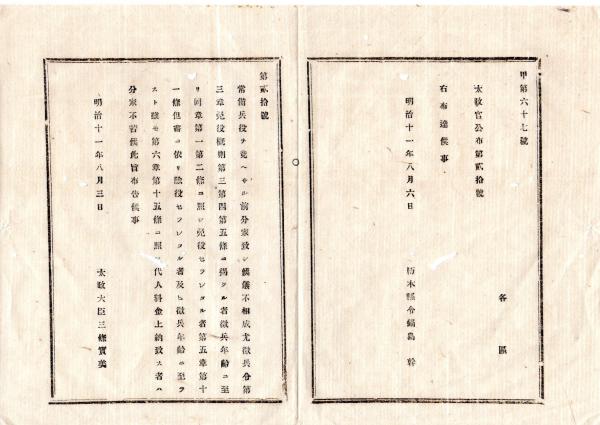 甲第六十七號
各區
太政官公布第貳拾號
右布達候事
明治十一年八月六日
栃木縣令鍋島幹
第貳拾號
常備兵役ヲ竟ヘサル前分家致シ候儀不相成尤徵兵令第
三章免役概則第三第四第五條ニ揭クル者徵兵年齡ニ至
リ同章第一第二條ニ照シ免役セラレタル者第五章第十
一條但書ニ依リ除役セラレタル者及ヒ徵兵年齡ニ至ラ
スト雖モ第六章第十五條ニ照シ代人料金上納致ス者ハ
分家不苦候此旨布告候事
明治十一年八月三日
太政大臣三條實美